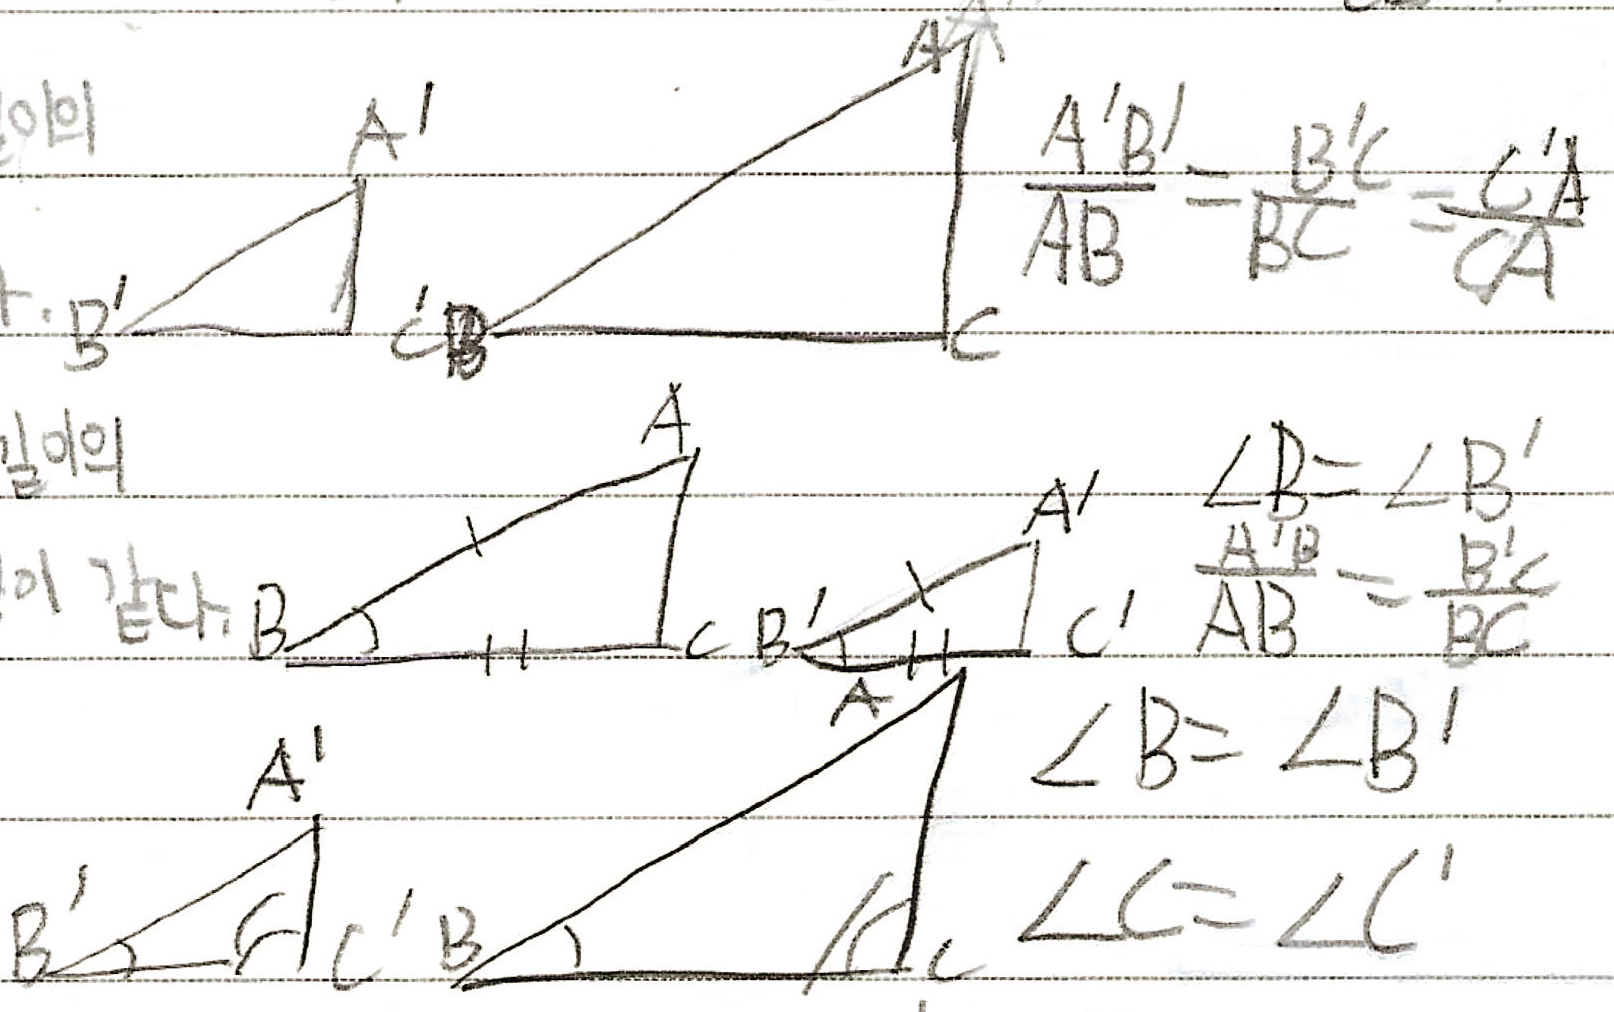 이의
A'
A
A'B'/AB = B'C/BC = C'A/CA
B' C' B C
길이의
A
A'
∠B = ∠B'
이 같다.
B C B' C'
A'B/AB = B'C/BC
A
∠B = ∠B'
A'
B' C' B C
∠C = ∠C'